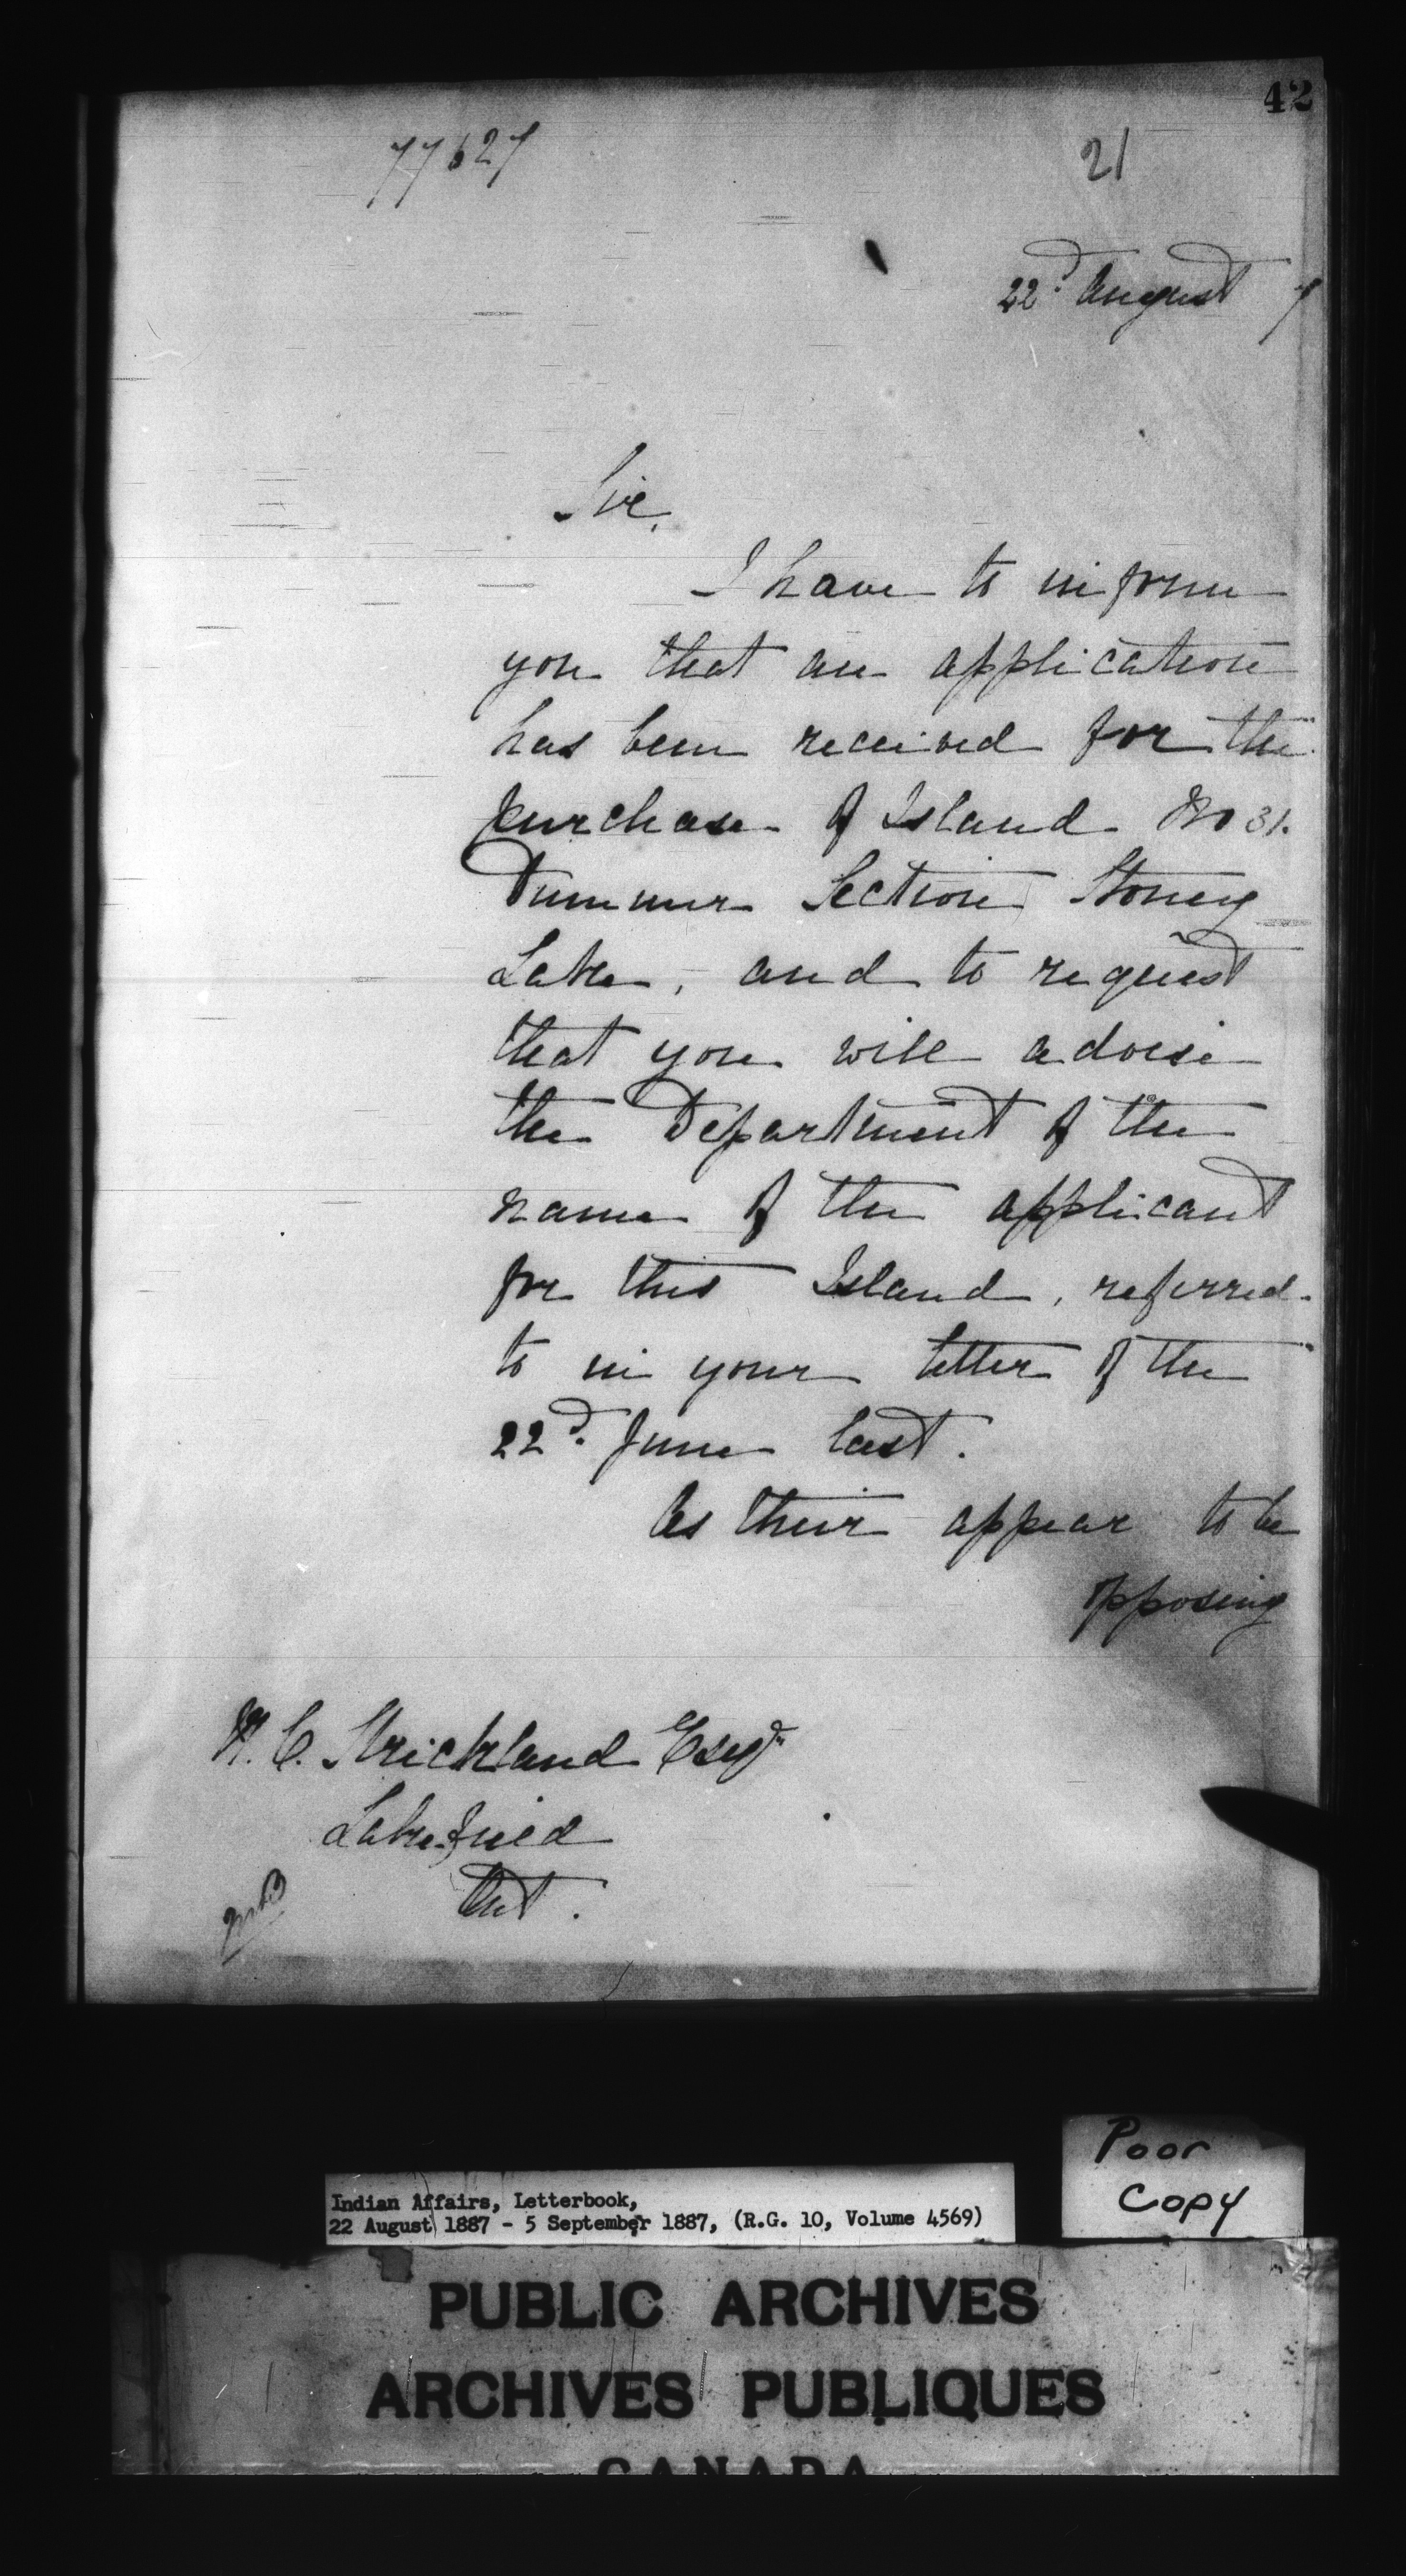 42
77627
21
22d. August 7
Sir,
I have to inform
you that an application
has been received for the
purchase of Island No 31.
Dummer Section Stoney
Lake, and to request
that you will advise
the Department of the
name of the applicant
for this Island, referred
to in your letter of the
22d. June last.
As their appear to be
opposing
R. C. Strickland Esqr
Lakefield
Ont.
Poor
Copy
Indian Affairs, Letterbook,
22 August 1887 - 5 September 1887, (R.G. 10, Volume 4569)
PUBLIC ARCHIVES
ARCHIVES PUBLIQUES
CANADA